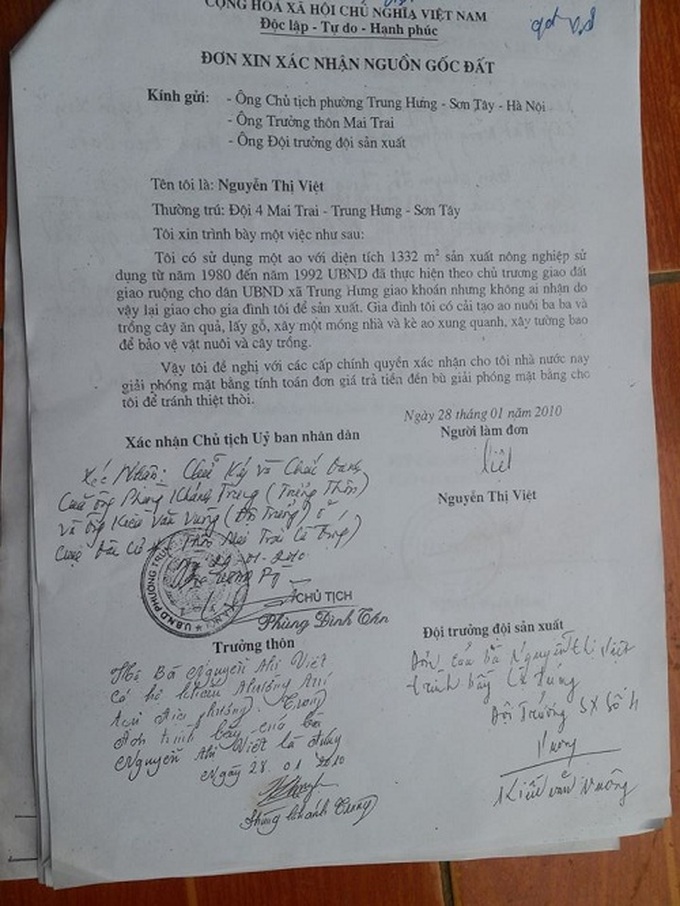 CỘNG HOÀ XÃ HỘI CHỦ NGHĨA VIỆT NAM
Độc lập - Tự do - Hạnh phúc
ĐƠN XIN XÁC NHẬN NGUỒN GỐC ĐẤT
Kính gửi: - Ông Chủ tịch phường Trung Hưng - Sơn Tây - Hà Nội
- Ông Trưởng thôn Mai Trai
- Ông Đội trưởng đội sản xuất
Tên tôi là: Nguyễn Thị Việt
Thường trú: Đội 4 Mai Trai - Trung Hưng - Sơn Tây
Tôi xin trình bày một việc như sau:
Tôi có sử dụng một ao với diện tích 1332 m² sản xuất nông nghiệp sử
dụng từ năm 1980 đến năm 1992 UBND đã thực hiện theo chủ trương giao đất
giao ruộng cho dân UBND xã Trung Hưng giao khoán nhưng không ai nhận do
vậy lại giao cho gia đình tôi để sản xuất. Gia đình tôi có cải tạo ao nuôi ba ba và
trồng cây ăn quả, lấy gỗ, xây một móng nhà và kè ao xung quanh, xây tường bao
để bảo vệ vật nuôi và cây trồng.
Vậy tôi đề nghị với các cấp chính quyền xác nhận cho tôi nhà nước nay
giải phóng mặt bằng tính toán đơn giá trả tiền đền bù giải phóng mặt bằng cho
tôi để tránh thiệt thòi.
Ngày 28 tháng 01 năm 2010
Xác nhận Chủ tịch Uỷ ban nhân dân
Người làm đơn
Việt
Nguyễn Thị Việt
Xác Nhận: Chữ Ký và Chức danh
Của ông Phùng Khánh Trung (Trưởng Thôn)
và ông Kiều Văn Vường (Đội Trưởng)
Thôn Mai Trai Là Đúng
29-01-2010
UBND PHƯỜNG TRUNG
CHỦ TỊCH
Phùng Đình
Trưởng thôn
Bà Nguyễn thị Việt
có hộ khẩu thường trú
tại
đơn trình bày của bà
Nguyễn thị Việt là đúng
Ngày 28.01 2010
Phùng Khánh Trung
Đội trưởng đội sản xuất
Đơn của bà Nguyễn thị Việt
trình bầy là đúng
Đội Trưởng SX Số 4
Kiều văn Vường